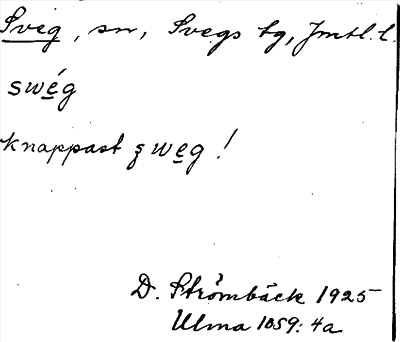 Sveg, sn, Svegs tg, Jmtl. l.
swég
knappast ʂweg!
D. Strömbäck 1925
Ulma 1059: 4a